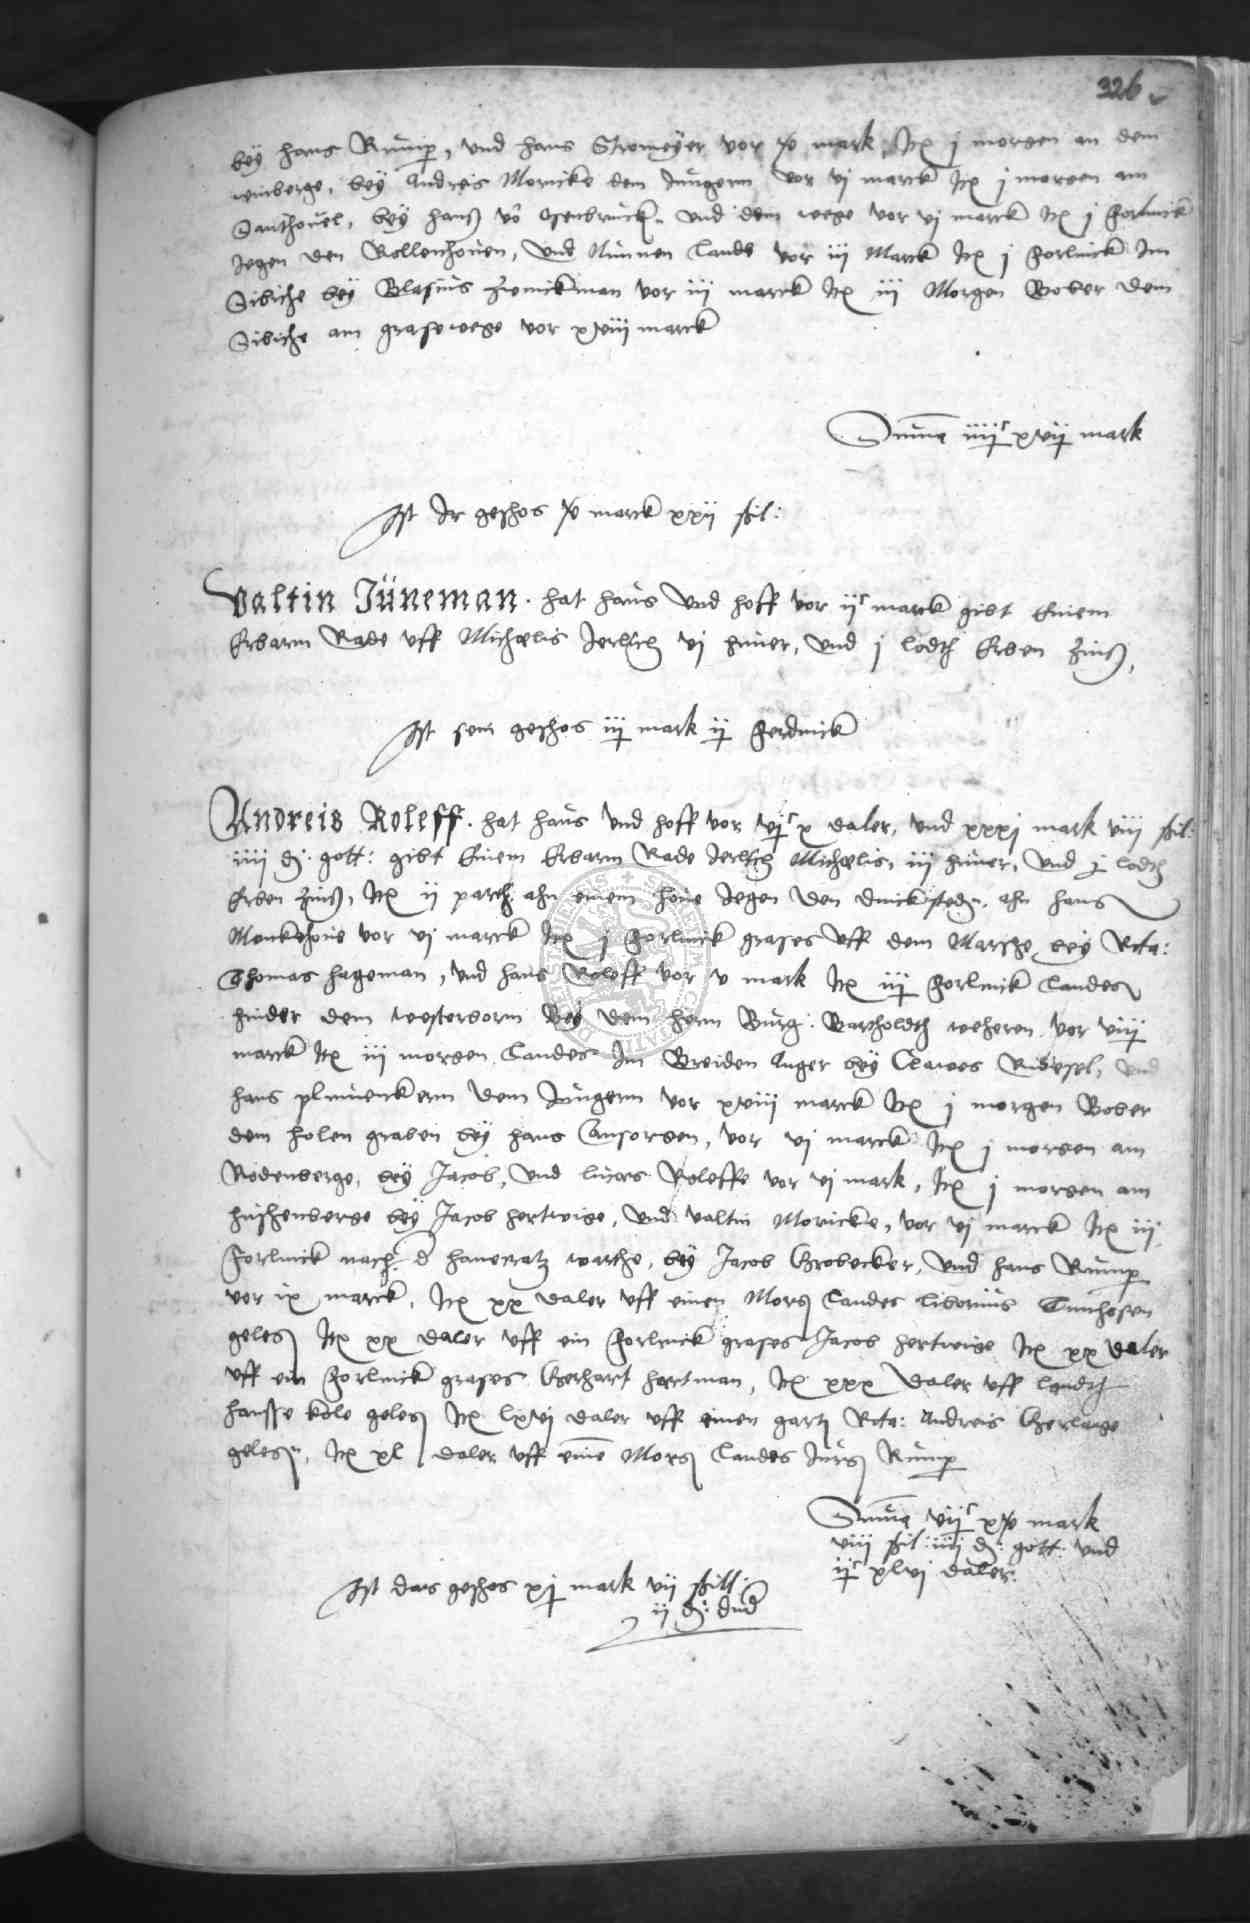 326
bey hans Rump, und hans Stromeyer vor xv mark, Itē j morgen an dem
winberge, bey Andreis Moricke dem Jungern vor vj marck Itē j morgen am
Santhovel, bey hanß vō Osenbruck, und dem wege vor vj marck Itē j forlinck
Jegen den Rollenhoven, und Nunnen Lande vor iii Marck Itē j forlinck Im
Sibiche bey Blasius Zwinckman vor iii marck Itē iii Morgen Bober dem
Sibiche am grasewege vor xviii marck
Summa iiijc xvij mark
Ist Ir geschos xv marck xxij schil:
Valtin Jüneman. hat haus und hoff vor ijc marck gibt Einem
Erbarm Rade uff Michaelis Jerlich vj huner, und j lodth Erben Zinß,
Ist sein geschos iij mark ij ferdinck
Andreis Roleff. hat haus und hoff vor vjc x daler, und xxxj mark viii schil:
iiii d. gott: gibt Einem Erbarm Rade Jerlich Michaelis, iii huner, und j lodth
Erben Zinß, Itē ij parth ahn einem hove Jegen den ahn hans
Monkehove vor vj marck Itē j forlinck grases uff dem Marsche bey
Thomas hageman, und hans Roloff vor v mark Itē iij forlinck Landes
hinder dem westerborm Bey dem herrn Burg: Bartholdth weheren vor viij
marck Itē iii morgen Landes Im Breiden Anger bey Clawes Ridesel, und
hans dem Jungern vor xviii marck Itē j morgen Bober
dem holen graben bey hans Ansorgen, vor vj marck Itē j morgen am
Rodenberge, bey Jacob, und lucas Roleffe vor vj mark, Itē j morgen am
bey Jacob hertwige, und valtin Moricke, vor vj marck Itē iii
forlinck nach d hanecratz warthe, bey Jacob Grobecker, und hans Rump
vor ix marck, Itē xx daler uff einen Morg Landes liborius Tunhosen
geleg Itē xx daler uff ein forlinck grases Jacob hertwige Itē xx daler
uff ein forlinck grases Gerhart hartman, Itē xxx daler uff landth
hansse kole geleg Itē lxvj daler uff einen gart Andreis Gerlage
geleg, Itē xl daler uff eine Morg Landes Jurg Rump
Summa vijc xv mark
viii schil: iiij d: gott: und
ijc xlvj daler.
Ist das geschos xj mark vij schill.
ij d: